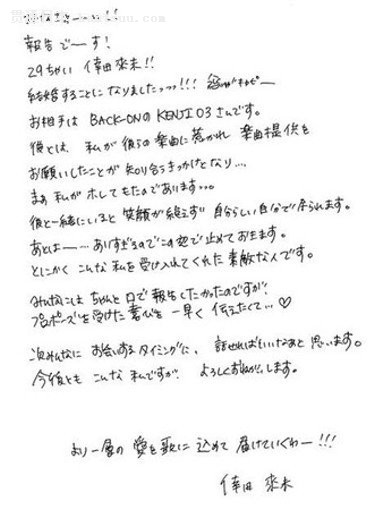 報告でーす!
29ちゃい 倖田來未!!
結婚することになりましたっっっ!!!
お相手は BACK-ONの KENJI03さんです。
彼とは、私が彼らの楽曲に惹かれ 楽曲提供を
お願いしたことが 知り合うきっかけとなり...
まぁ 私が ホレてもたのであります...。
彼と一緒にいると 笑顔が絶えず 自分らしい自分で居られます。
あとは–... ありすぎるのでこの辺で止めておきます。
とにかく こんな私を受け入れてくれた素敵な人です。
みんなには ちゃんと口で報告したかったのですが!
プロポーズを受けた喜びを 一早く 伝えたくて...♡
次みんなに お会いするタイミングに、 話せればいいなぁと 思います。
今後とも こんな 私ですが! よろしくおねがいします。
より一層の 愛を歌に 込めて 届けていくわー!!!
倖田 來未